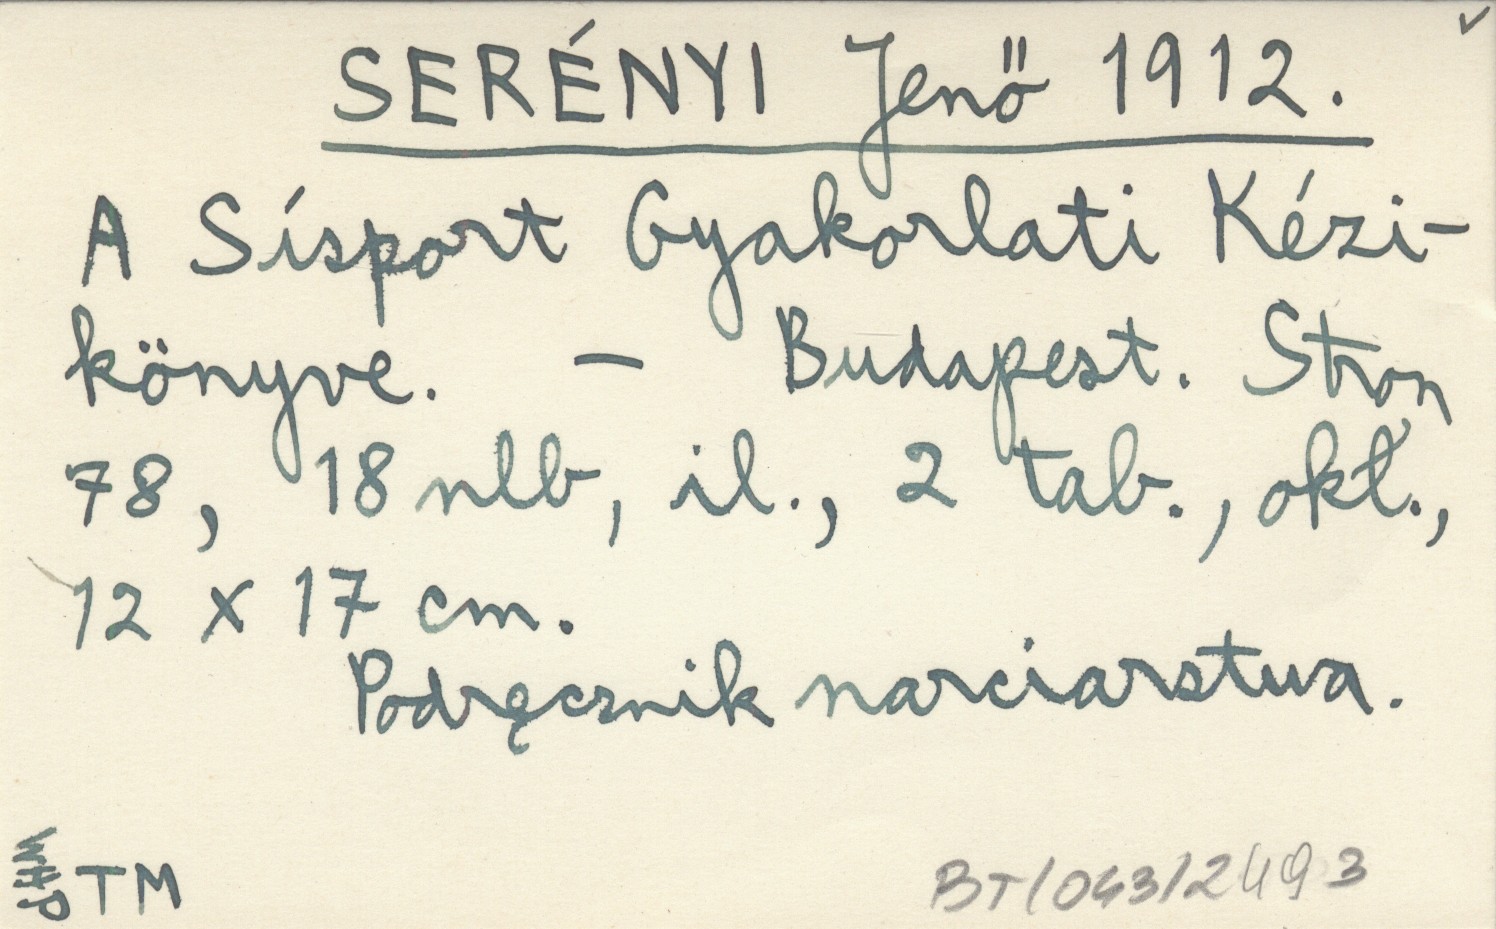 SERÉNYI Jenő 1912.
A Sísport Gyakorlati Kézi-
könyve. – Budapest. Stron
78, 18 nlb, il., 2 tab., okł.,
12 x 17 cm.
Podręcznik narciarstwa.
WHP
TM
BT/043/2493